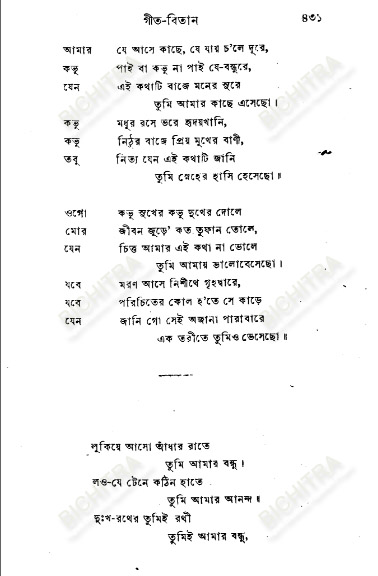 গীত-বিতান ৪৩১
আমার যে আসে কাছে, যে যায় চ'লে দূরে,
কভু পাই বা কভু না পাই যে-বন্ধুরে,
যেন এই কথাটি বাজে মনের সুরে
তুমি আমার কাছে এসেছো॥
কভু মধুর রসে ভরে হৃদয়খানি,
কভু নিঠুর বাজে প্রিয় মুখের বাণী,
তবু নিত্য যেন এই কথাটি জানি
তুমি স্নেহের হাসি হেসেছো॥
ওগো কভু সুখের কভু দুখের দোলে
মোর জীবন জুড়ে' কত তুফান তোলে,
যেন চিত্ত আমার এই কথা না ভোলে
তুমি আমায় ভালোবেসেছো॥
যবে মরণ আসে নিশীথে গৃহদ্বারে,
যবে পরিচিতের কোল হ'তে সে কাড়ে
যেন জানি গো সেই অজানা পারাবারে
এক তরীতে তুমিও ভেসেছো॥
লুকিয়ে আসো আঁধার রাতে
তুমি আমার বন্ধু।
লও-যে টেনে কঠিন হাতে
তুমি আমার আনন্দ॥
দুঃখ-রথের তুমিই রথী
তুমিই আমার বন্ধু,
BICHITRA
BICHITRA
BICHITRA
BICHITRA
BICHITRA
BICHITRA